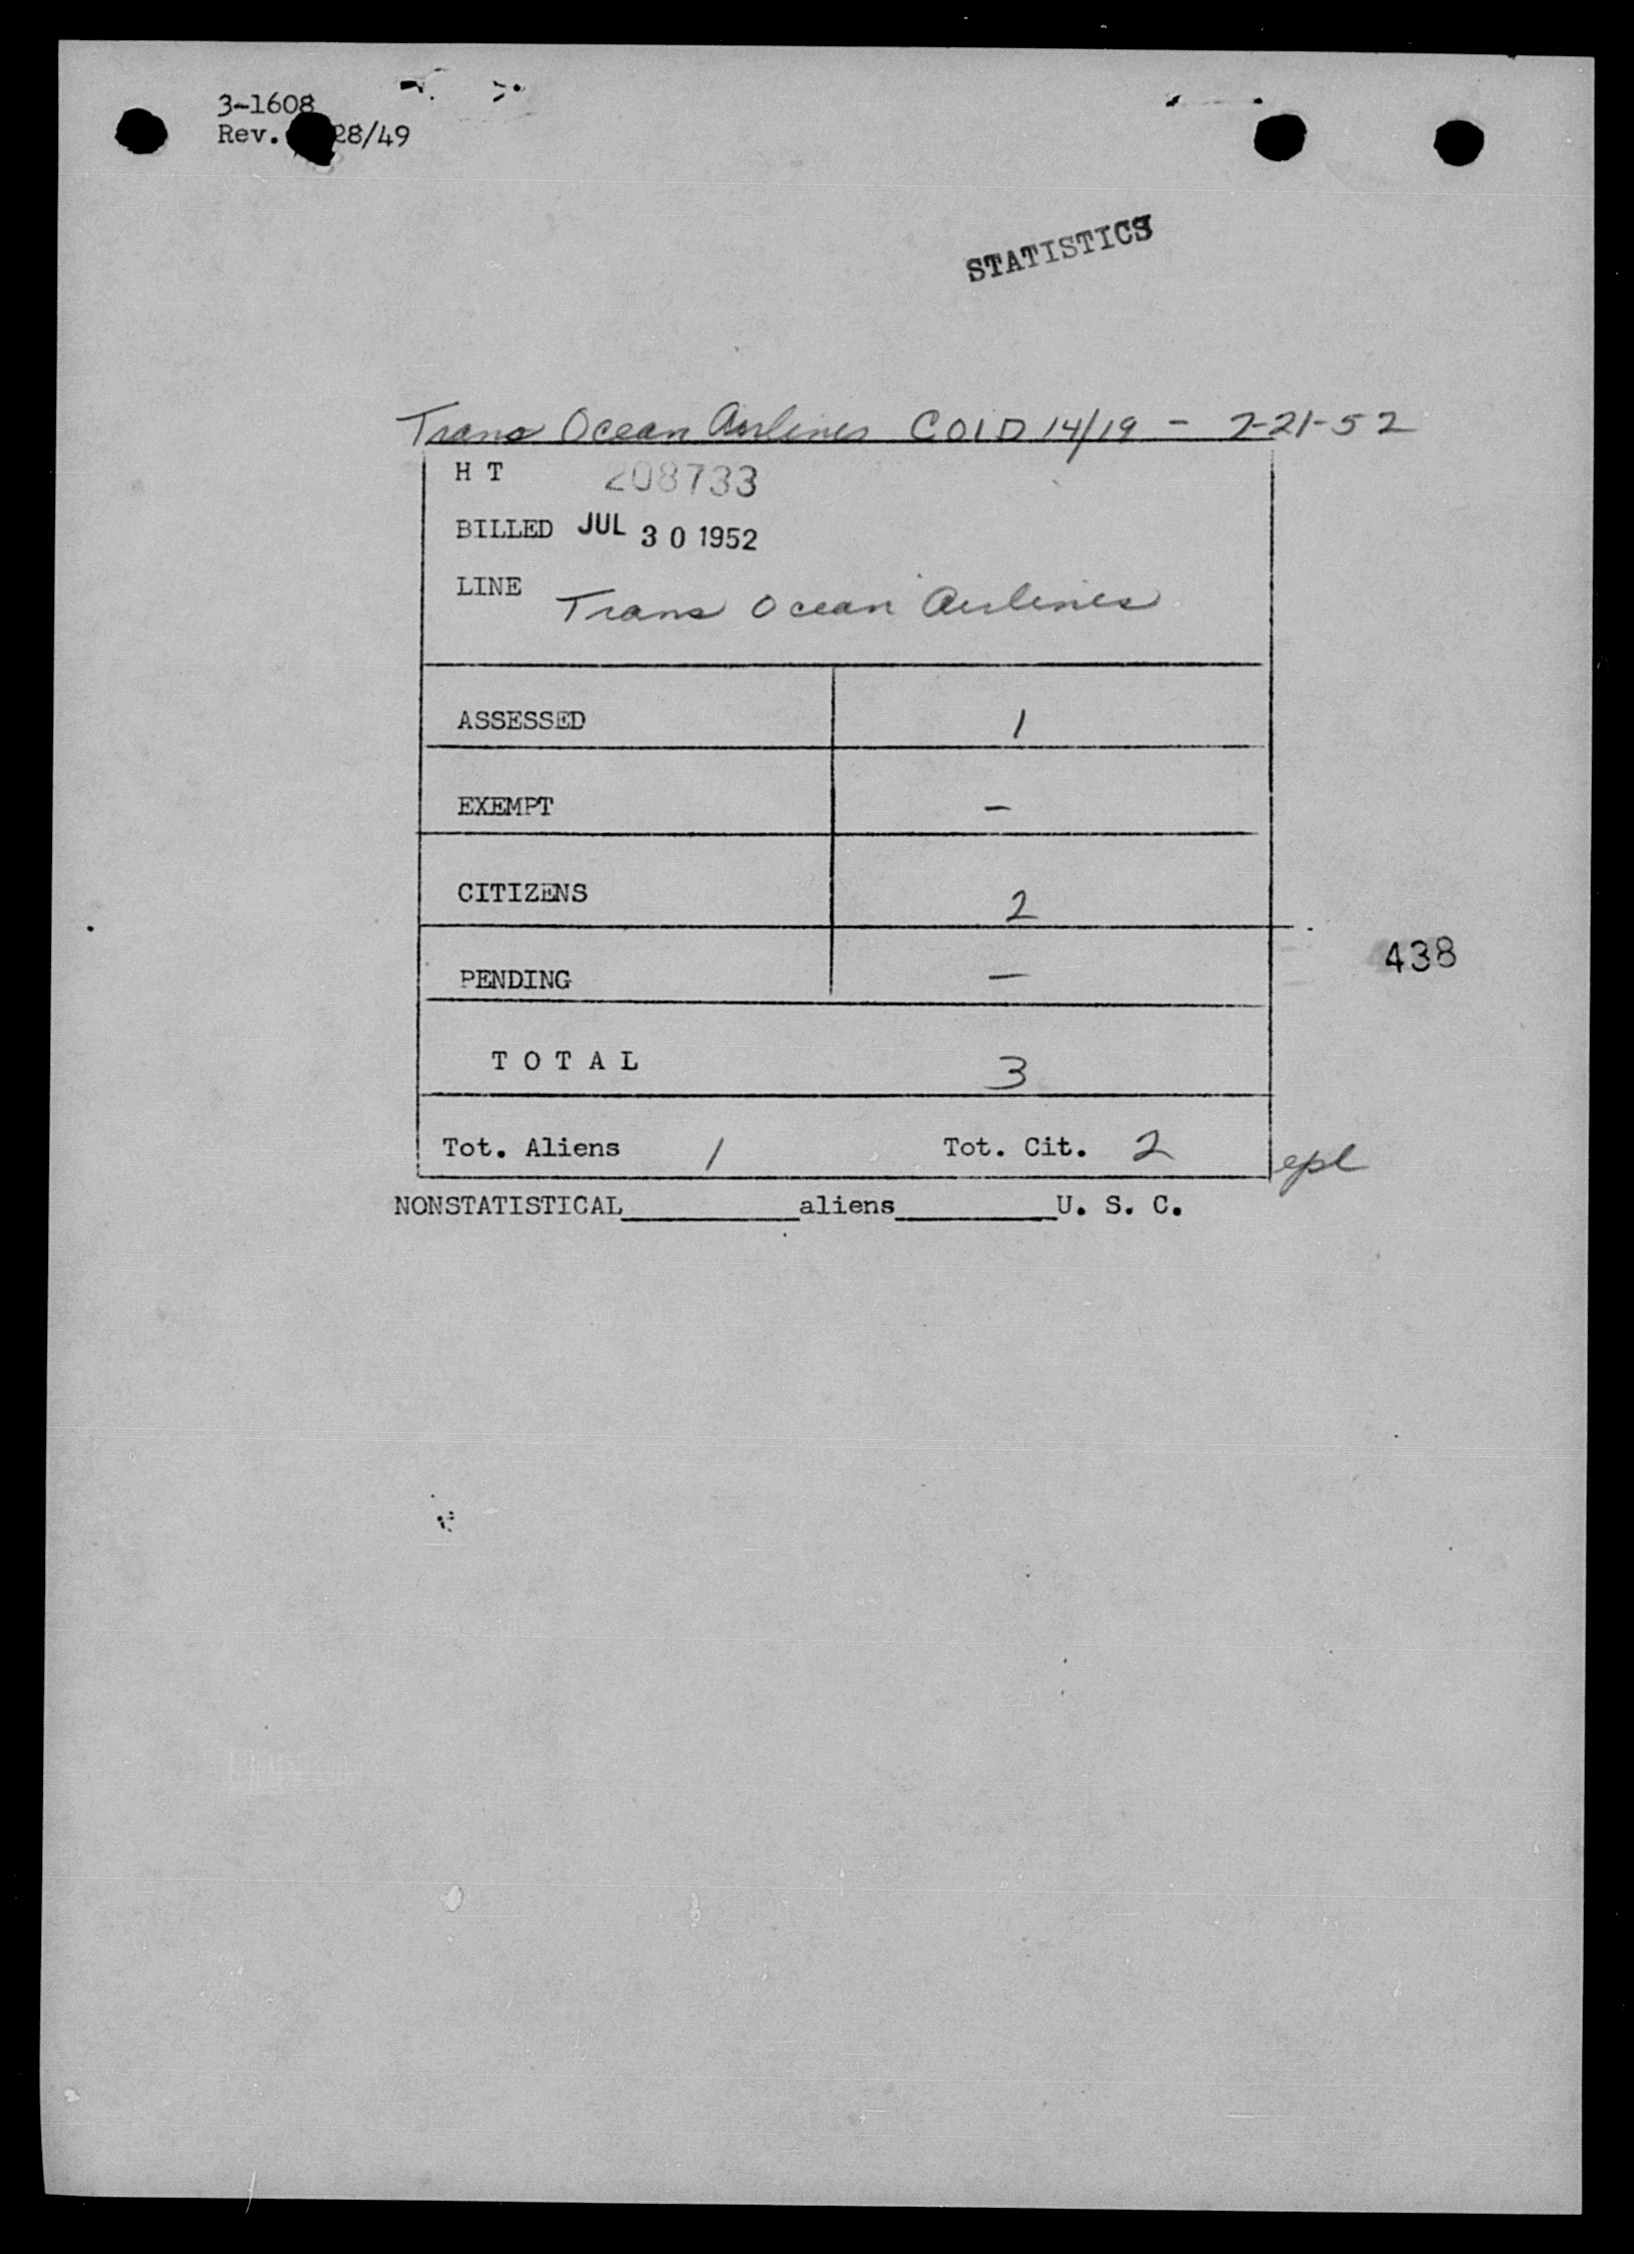 3-1608
Rev. 28/49
STATISTICS
Trans Ocean Airlines COID 14/19 - 7-21-52
H T 208733
BILLED JUL 30 1952
LINE Trans Ocean Airlines
ASSESSED 1
EXEMPT -
CITIZENS 2
438
PENDING -
T O T A L 3
Tot. Aliens 1 Tot. Cit. 2 epl
NONSTATISTICAL__________aliens__________U. S. C.